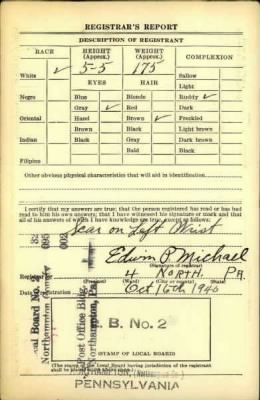 REGISTRAR'S REPORT
DESCRIPTION OF REGISTRANT
RACE HEIGHT (Approx.) WEIGHT (Approx.) COMPLEXION
White ✓ 5-5 175 Sallow
EYES HAIR Light
Negro Blue Blonde Ruddy ✓
Gray ✓ Red Dark
Oriental Hazel Brown ✓ Freckled
Brown Black Light brown
Indian Black Gray Dark brown
Bald Black
Filipino
Other obvious physical characteristics that will aid in identification
I certify that my answers are true; that the person registered has read or has had
read to him his own answers; that I have witnessed his signature or mark and that
all of his answers of which I have knowledge are true, except as follows:
Scar on Left Wrist
Edwin P. Michael
(Signature of registrar)
Registrar for 4 NORTH. PA.
(Precinct) (Ward) (City or county) (State)
Oct 16th 1940
Local Board No. 2
Northampton County
Post Office Bldg.
Northampton, Pa.
L. B. No. 2
STAMP OF LOCAL BOARD
(The stamp of the Local Board having jurisdiction of the registrant
shall be placed in the above space.)
PENNSYLVANIA